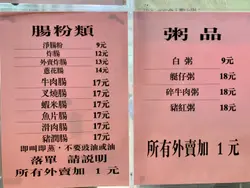 腸粉類
淨腸粉 9元
炸腸 12元
外賣炸腸 13元
蔥花腸 14元
牛肉腸 17元
叉燒腸 17元
蝦米腸 17元
魚片腸 17元
滑肉腸 17元
豬潤腸 17元
即叫即蒸，不要豉油或油
落單 請說明
所有外賣加 1 元
粥品
白粥 9元
艇仔粥 18元
碎牛肉粥 18元
豬紅粥 18元
所有外賣加 1 元